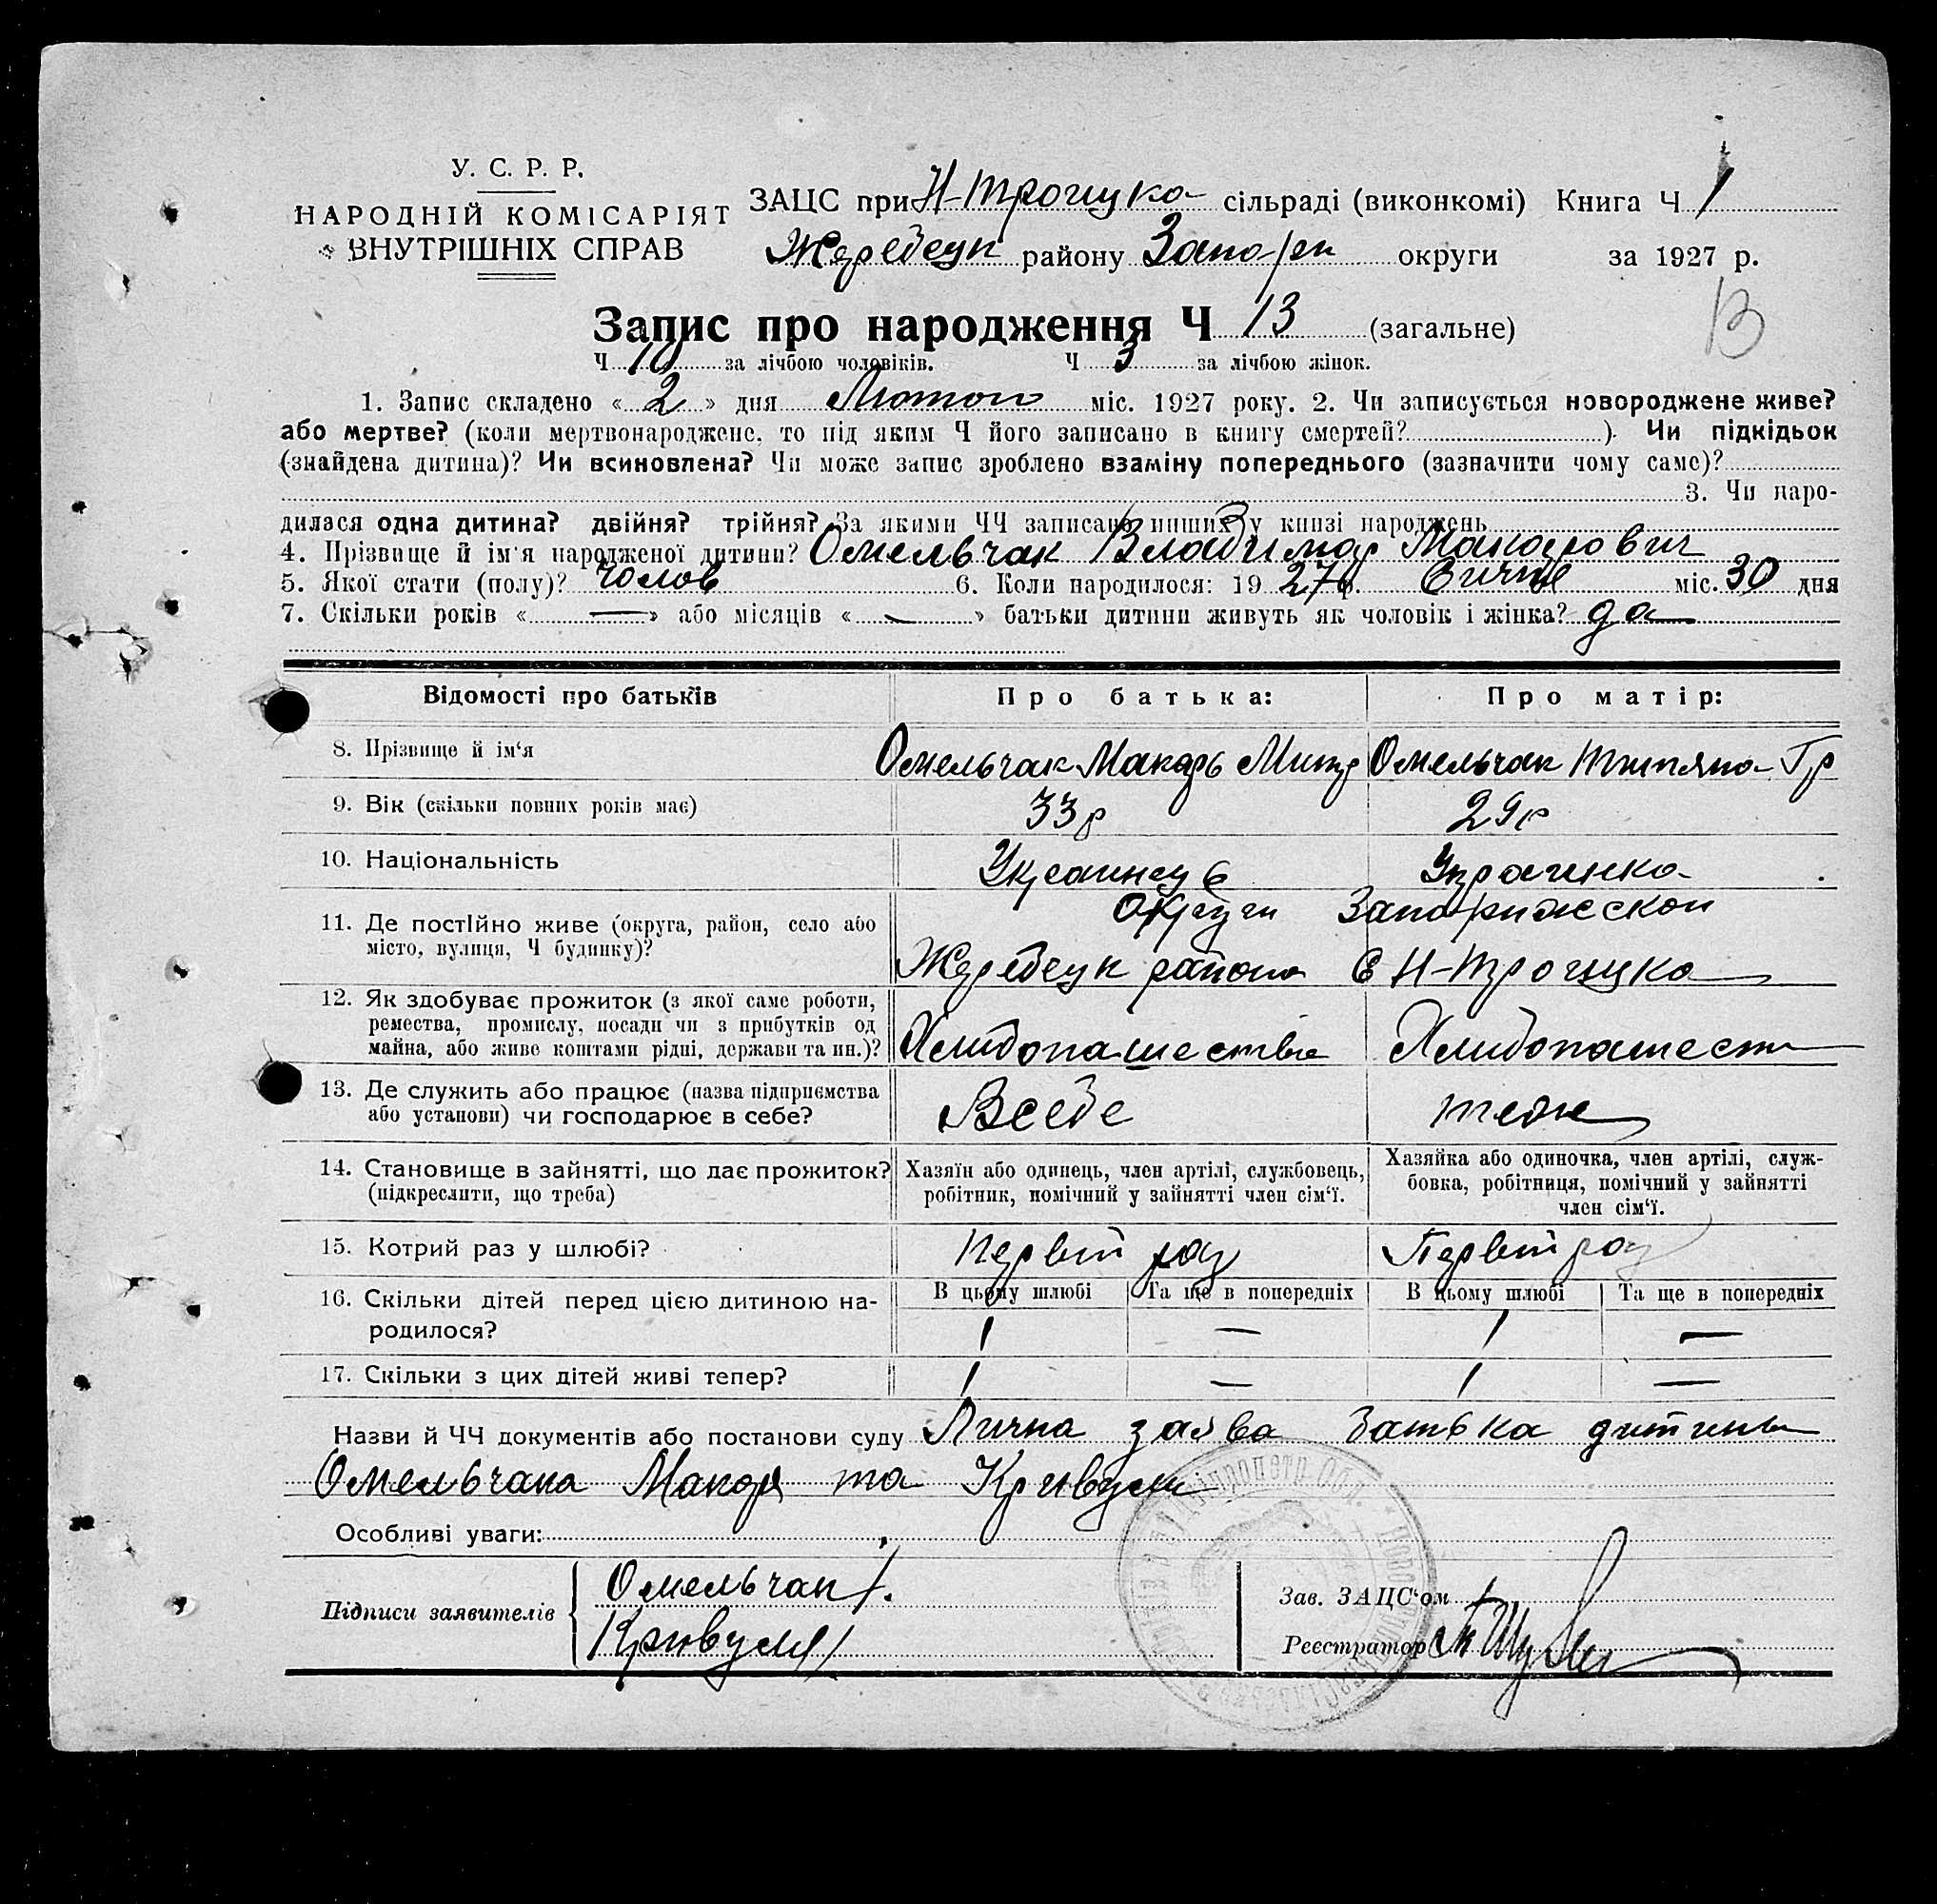 У. С. Р. Р.
НАРОДНІЙ КОМІСАРІЯТ
ВНУТРІШНІХ СПРАВ
ЗАЦС при Н-Троицко сільраді (виконкомі) Книга Ч 1
Жеребецк району Запорж округи за 1927 р.
13
Запис про народження Ч 13 (загальне)
Ч 10 за лічбою чоловіків. Ч 3 за лічбою жінок.
1. Запис складено «2» дня Лютого міс. 1927 року. 2. Чи записується новороджене живе?
або мертве? (коли мертвонароджене, то під яким Ч його записано в книгу смертей? ). Чи підкідьок
(знайдена дитина)? Чи всиновлена? Чи може запис зроблено взаміну попереднього (зазначити чому саме)?
3. Чи наро-
дилася одна дитина? двійня? трійня? За якими ЧЧ записано инших у книзі народжень
4. Прізвище й ім'я народженої дитини? Омельчак Владимар Макарович
5. Якої стати (полу)? чолов 6. Коли народилося: 19 27 р. Сичня міс. 30 дня
7. Скільки років « — » або місяців « — » батьки дитини живуть як чоловік і жінка? да
Відомості про батьків Про батька: Про матір:
8. Прізвище й ім'я Омельчак Макарь Митр Омельчак Титяна Гр
9. Вік (скільки повних років має) 33р 29р
10. Національність Украинець Украинка
11. Де постійно живе (округа, район, село або Округи Запорижской
місто, вулиця, Ч будинку)? Жеребецк района С Н-Троицка
12. Як здобуває прожиток (з якої саме роботи,
ремества, промислу, посади чи з прибутків од
майна, або живе коштами рідні, держави та ин.)? Хлибопашество Хлибопашест
13. Де служить або працює (назва підприємства
або установи) чи господарює в себе? Всебе теж
14. Становище в зайнятті, що дає прожиток?
(підкреслити, що треба)
Хазяїн або одинець, член артілі, службовець,
робітник, помічний у зайнятті член сім'ї.
Хазяйка або одиночка, член артілі, служ-
бовка, робітниця, помічний у зайнятті
член сім'ї.
15. Котрий раз у шлюбі? Первий раз Первий раз
16. Скільки дітей перед цією дитиною на-
родилося?
В цьому шлюбі Та ще в попередніх В цьому шлюбі Та ще в попередніх
1 — 1 —
17. Скільки з цих дітей живі тепер? 1 — 1 —
Назви й ЧЧ документів або постанови суду Лична заява батька дитины
Омельчака Макара та
Особливі уваги:
Підписи заявителів
Омельчак
Зав. ЗАЦС'ом
Реєстратор